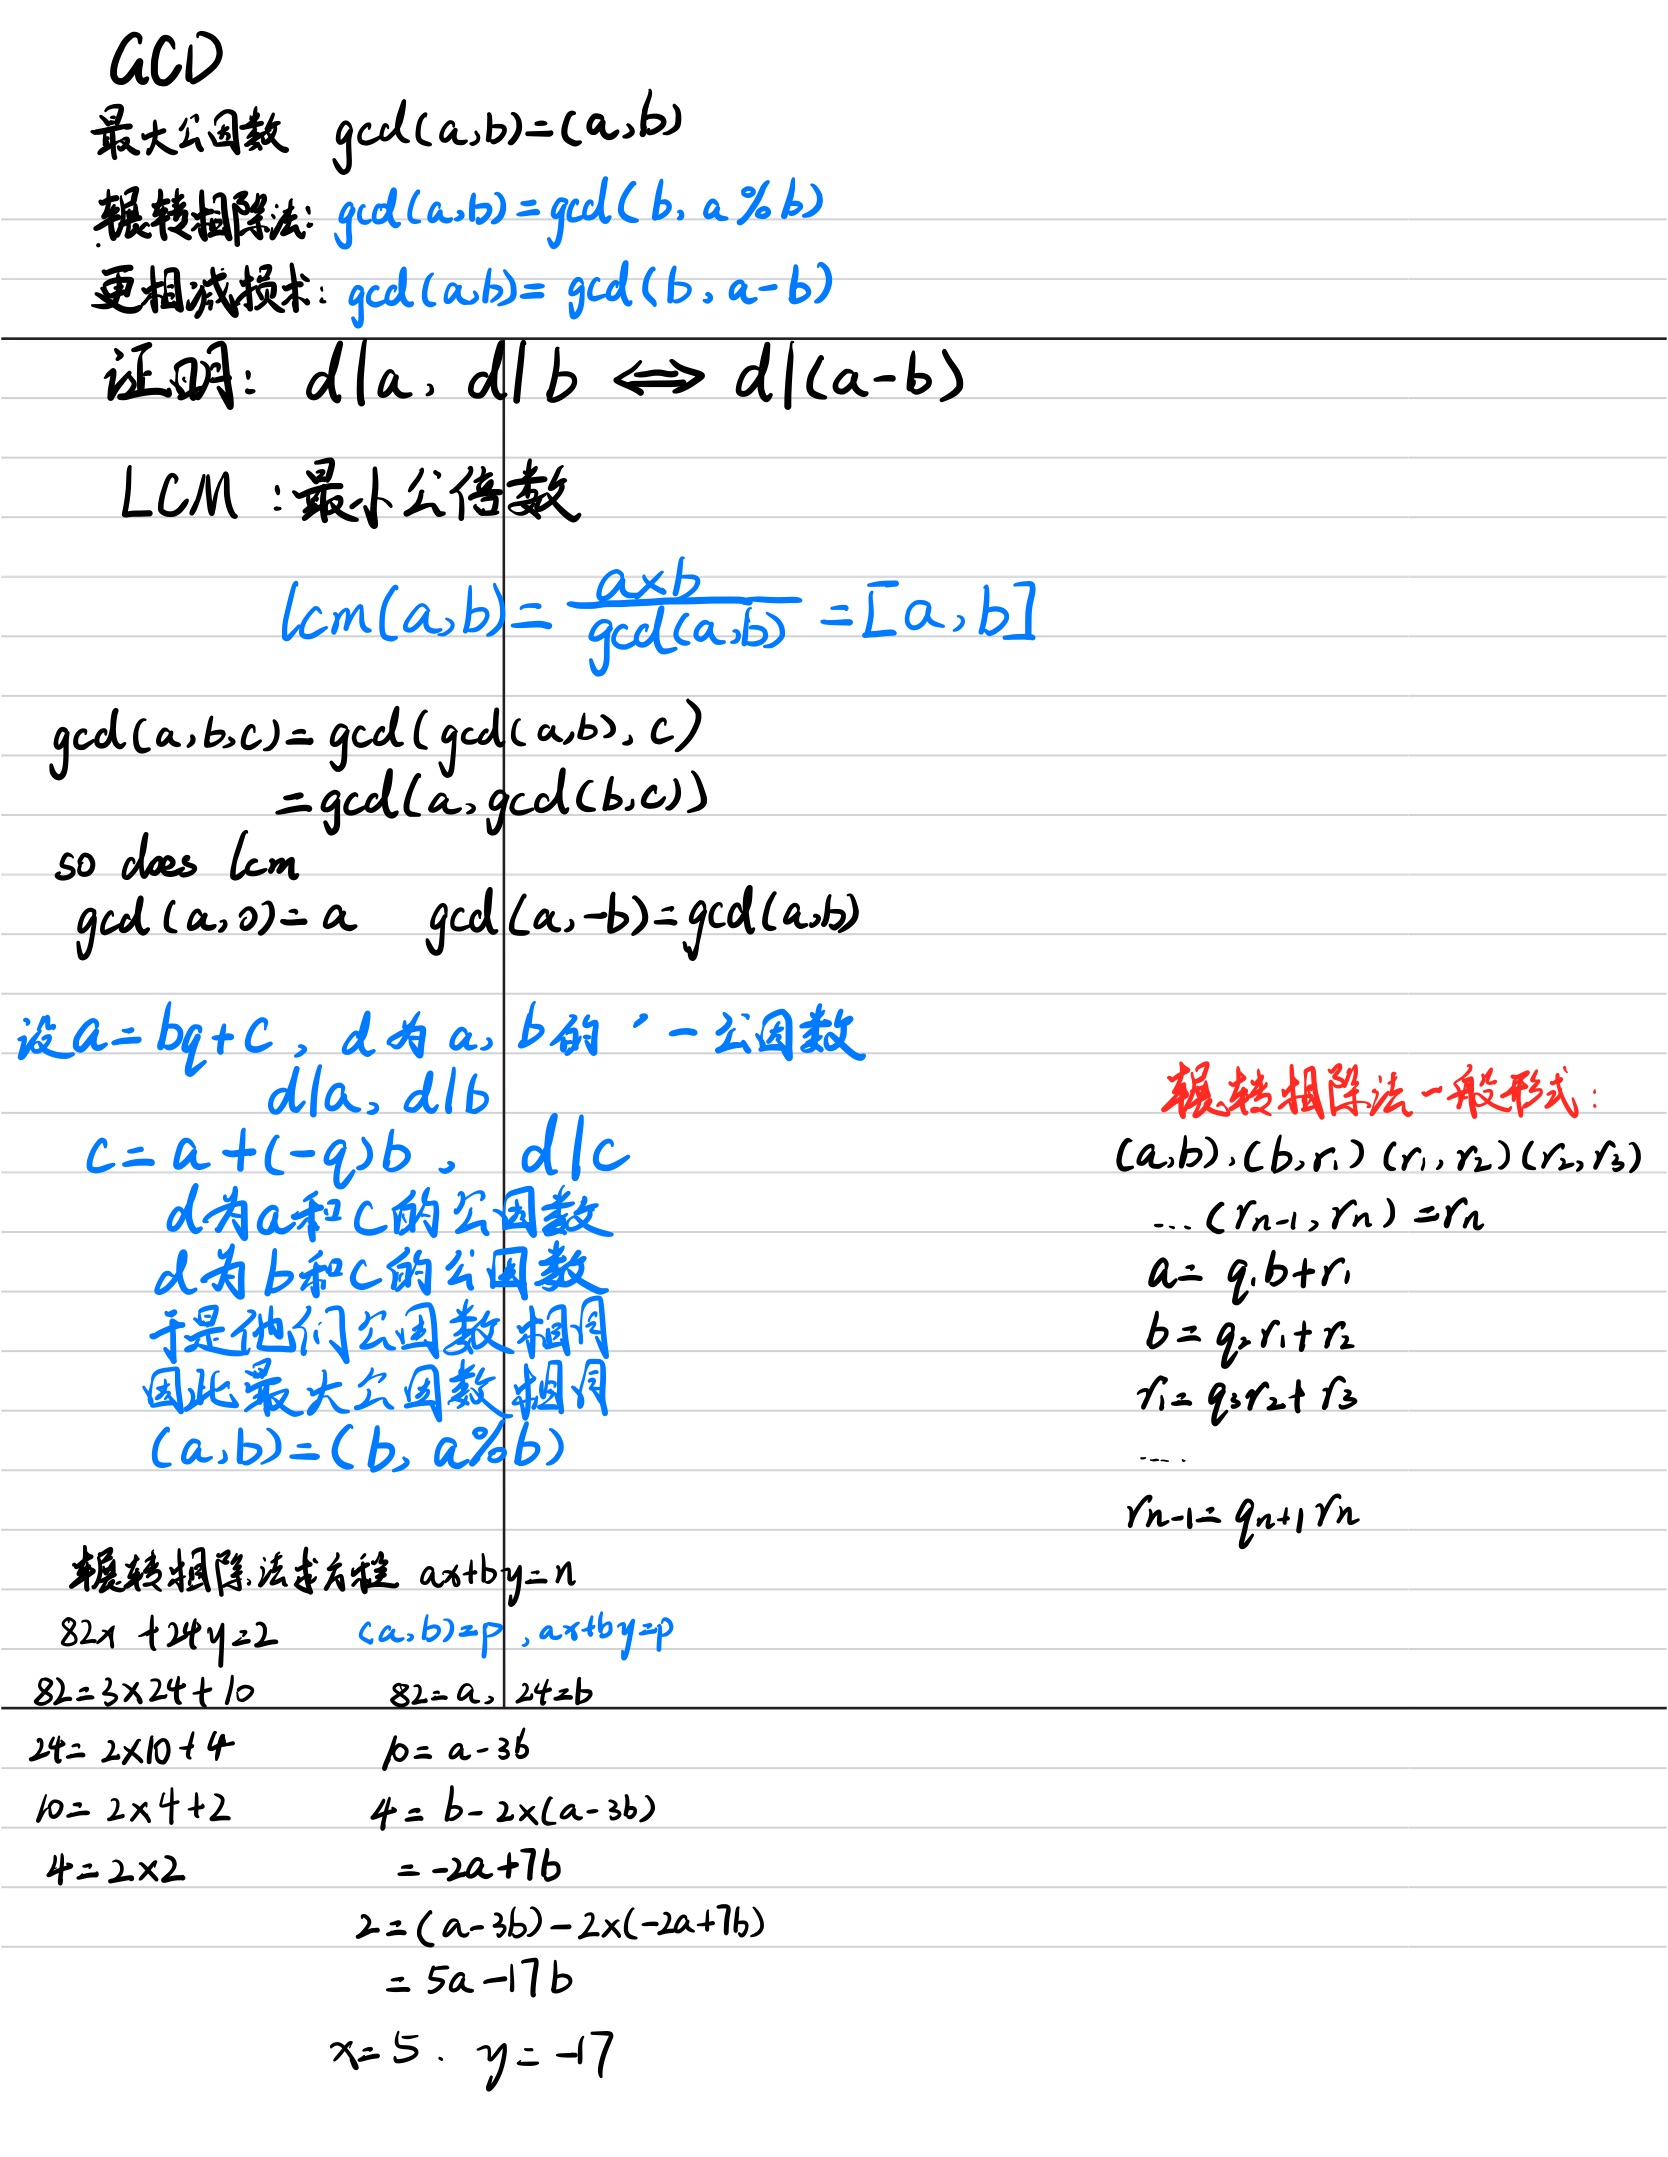 GCD
最大公因数 gcd(a,b)=(a,b)
辗转相除法: gcd(a,b)=gcd(b, a%b)
更相减损术: gcd(a,b)= gcd(b, a-b)
证明: d|a, d|b ⟺ d|(a-b)
LCM :最小公倍数
lcm(a,b)= \frac{a×b}{gcd(a,b)} =[a,b]
gcd(a,b,c)=gcd(gcd(a,b), c)
=gcd(a,gcd(b,c))
so does lcm
gcd(a,0)=a gcd(a,-b)=gcd(a,b)
设a=bq+c, d为a, b的一公因数
d|a, d|b
c=a+(-q)b, d|c
d为a和c的公因数
d为b和c的公因数
于是他们公因数相同
因此最大公因数相同
(a,b)=(b, a%b)
辗转相除法一般形式:
(a,b),(b,r₁)(r₁,r₂)(r₂,r₃)
...(rₙ₋₁,rₙ)=rₙ
a= q₁b+r₁
b= q₂r₁+r₂
r₁= q₃r₂+r₃
.....
rₙ₋₁= qₙ₊₁rₙ
辗转相除法求方程 ax+by=n
82x+24y=2 (a,b)=p, ax+by=p
82=3×24+10 82=a, 24=b
24=2×10+4 10= a-3b
10= 2×4+2 4= b-2×(a-3b)
4=2×2 = -2a+7b
2=(a-3b)-2×(-2a+7b)
= 5a-17b
x=5. y=-17